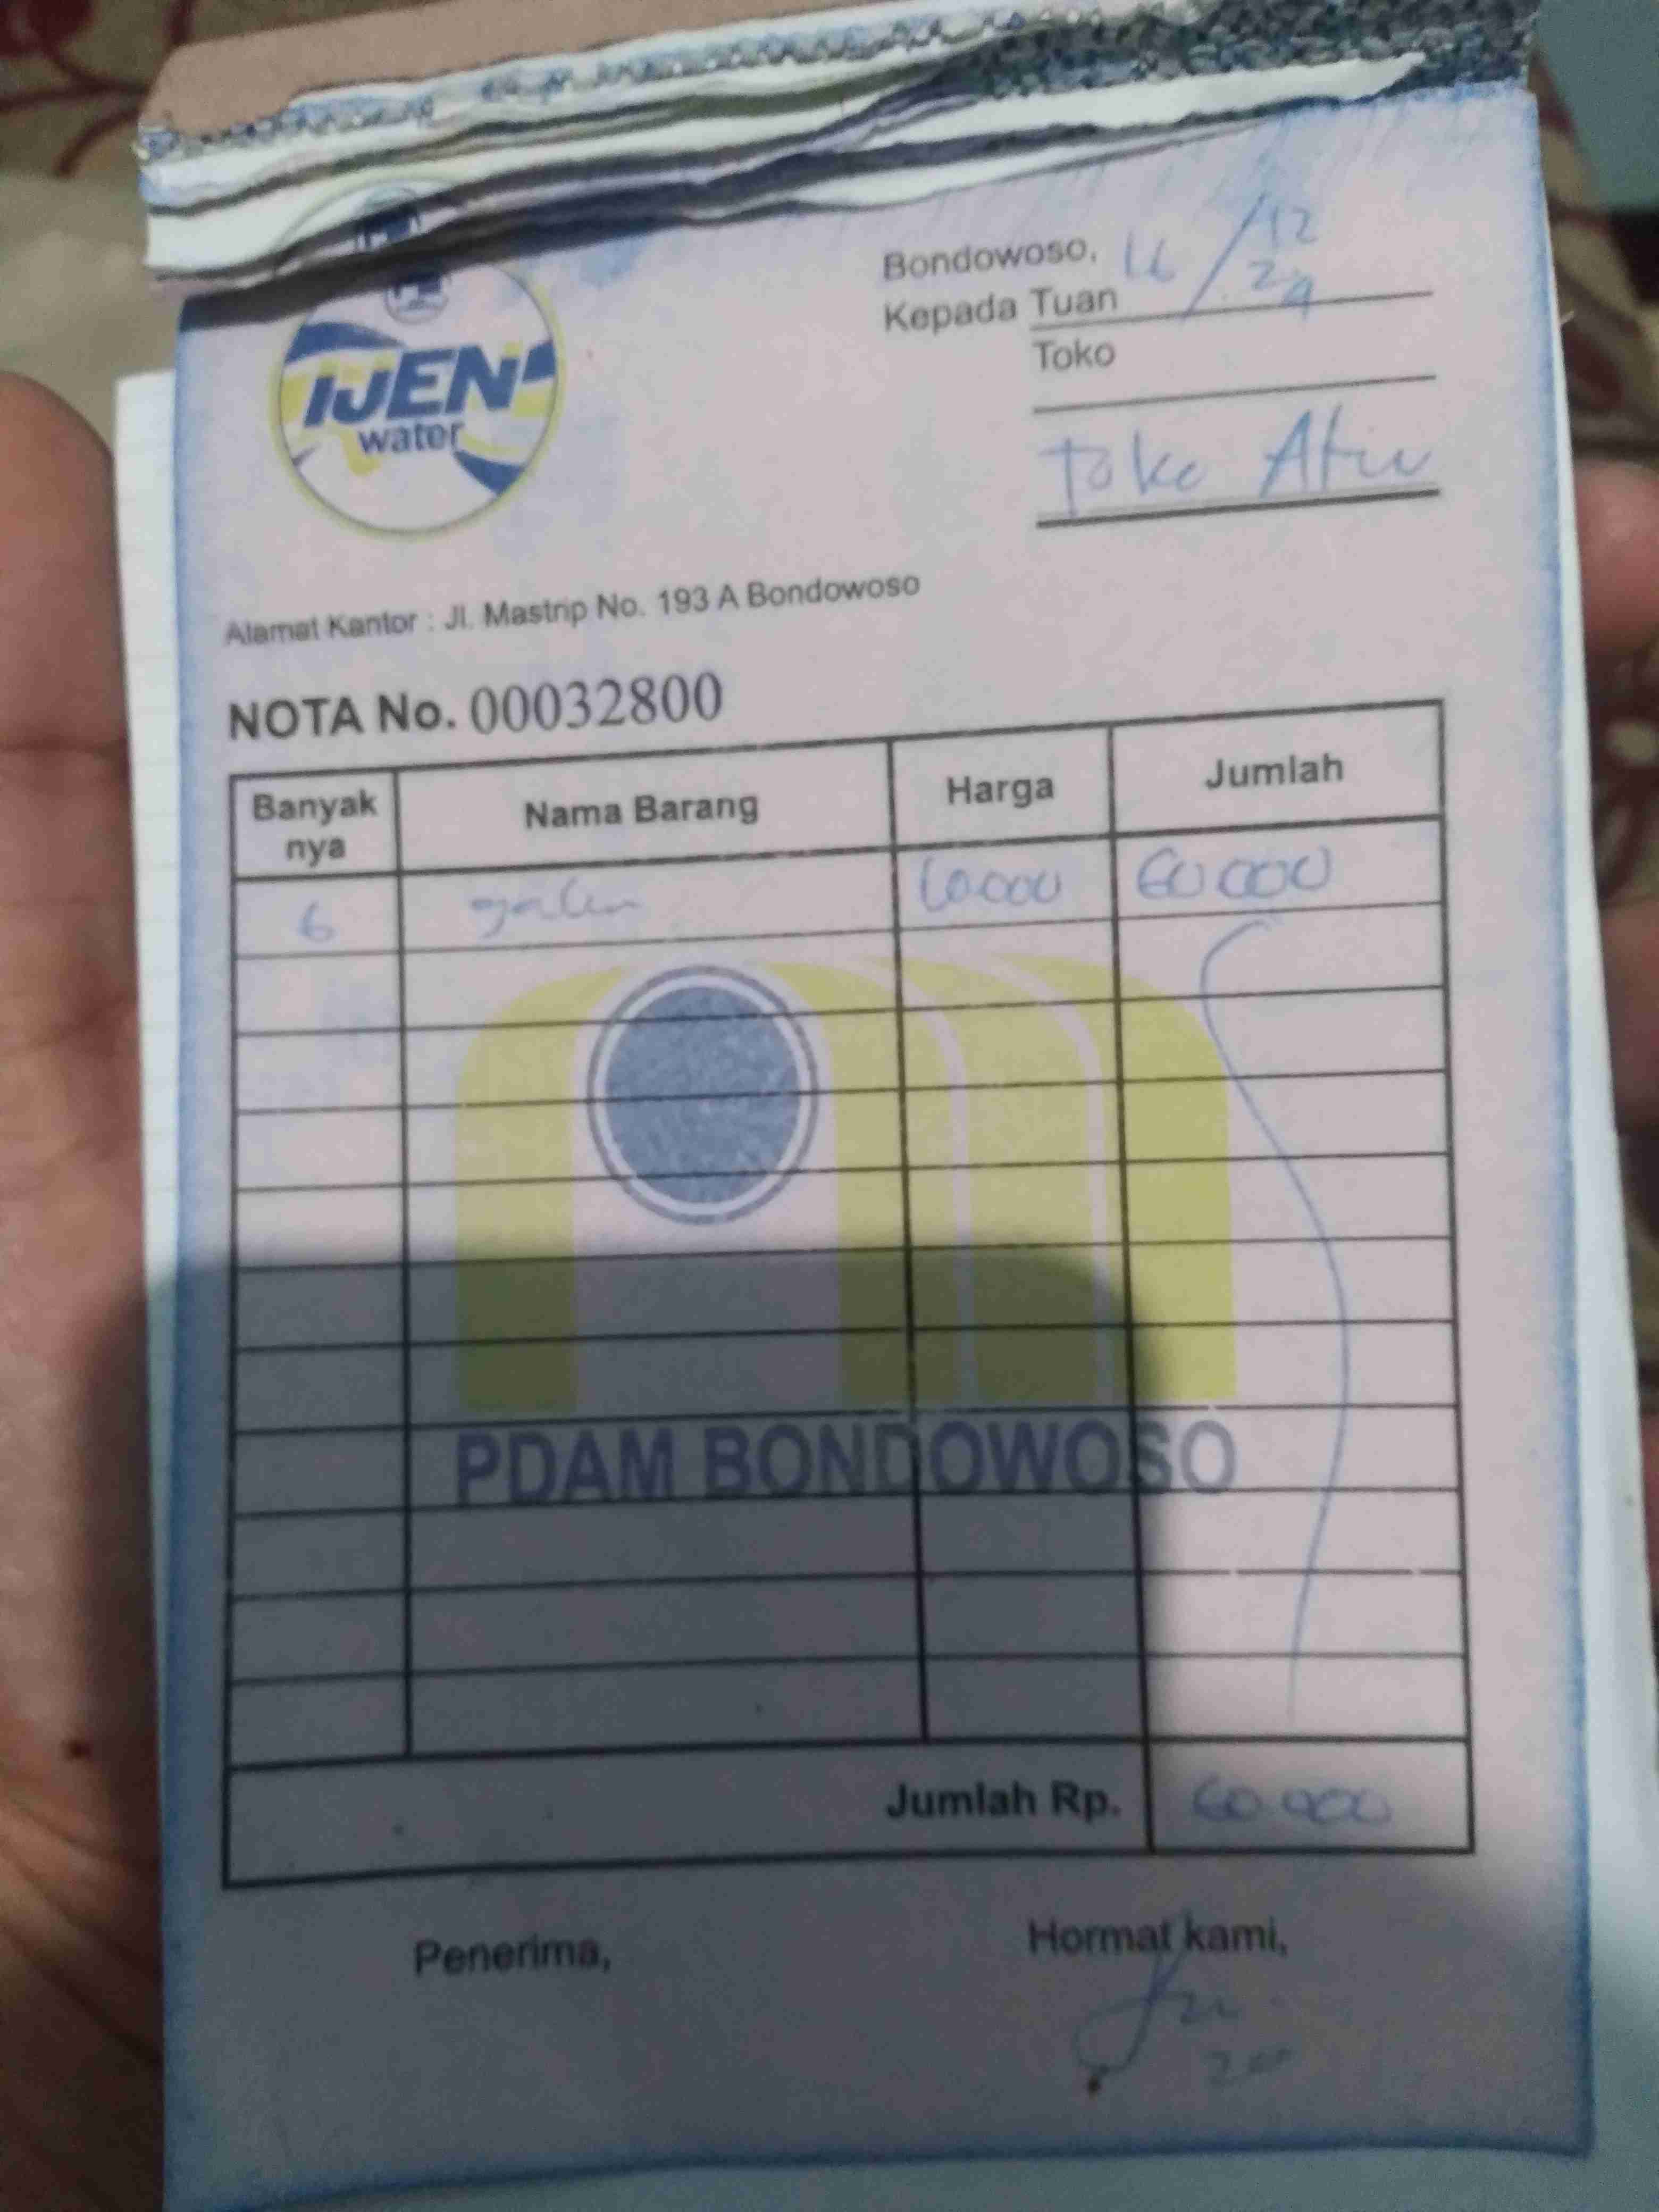 IJEN
water
Bondowoso, 16/12
24
Kepada Tuan
Toko
Toko
Alamat Kantor : Jl. Mastrip No. 193 A Bondowoso
NOTA No. 00032800
Banyak nya Nama Barang Harga Jumlah
6 galon 10.000 60 000
PDAM BONDOWOSO
Jumlah Rp. 60.000
Penerima, Hormat kami,